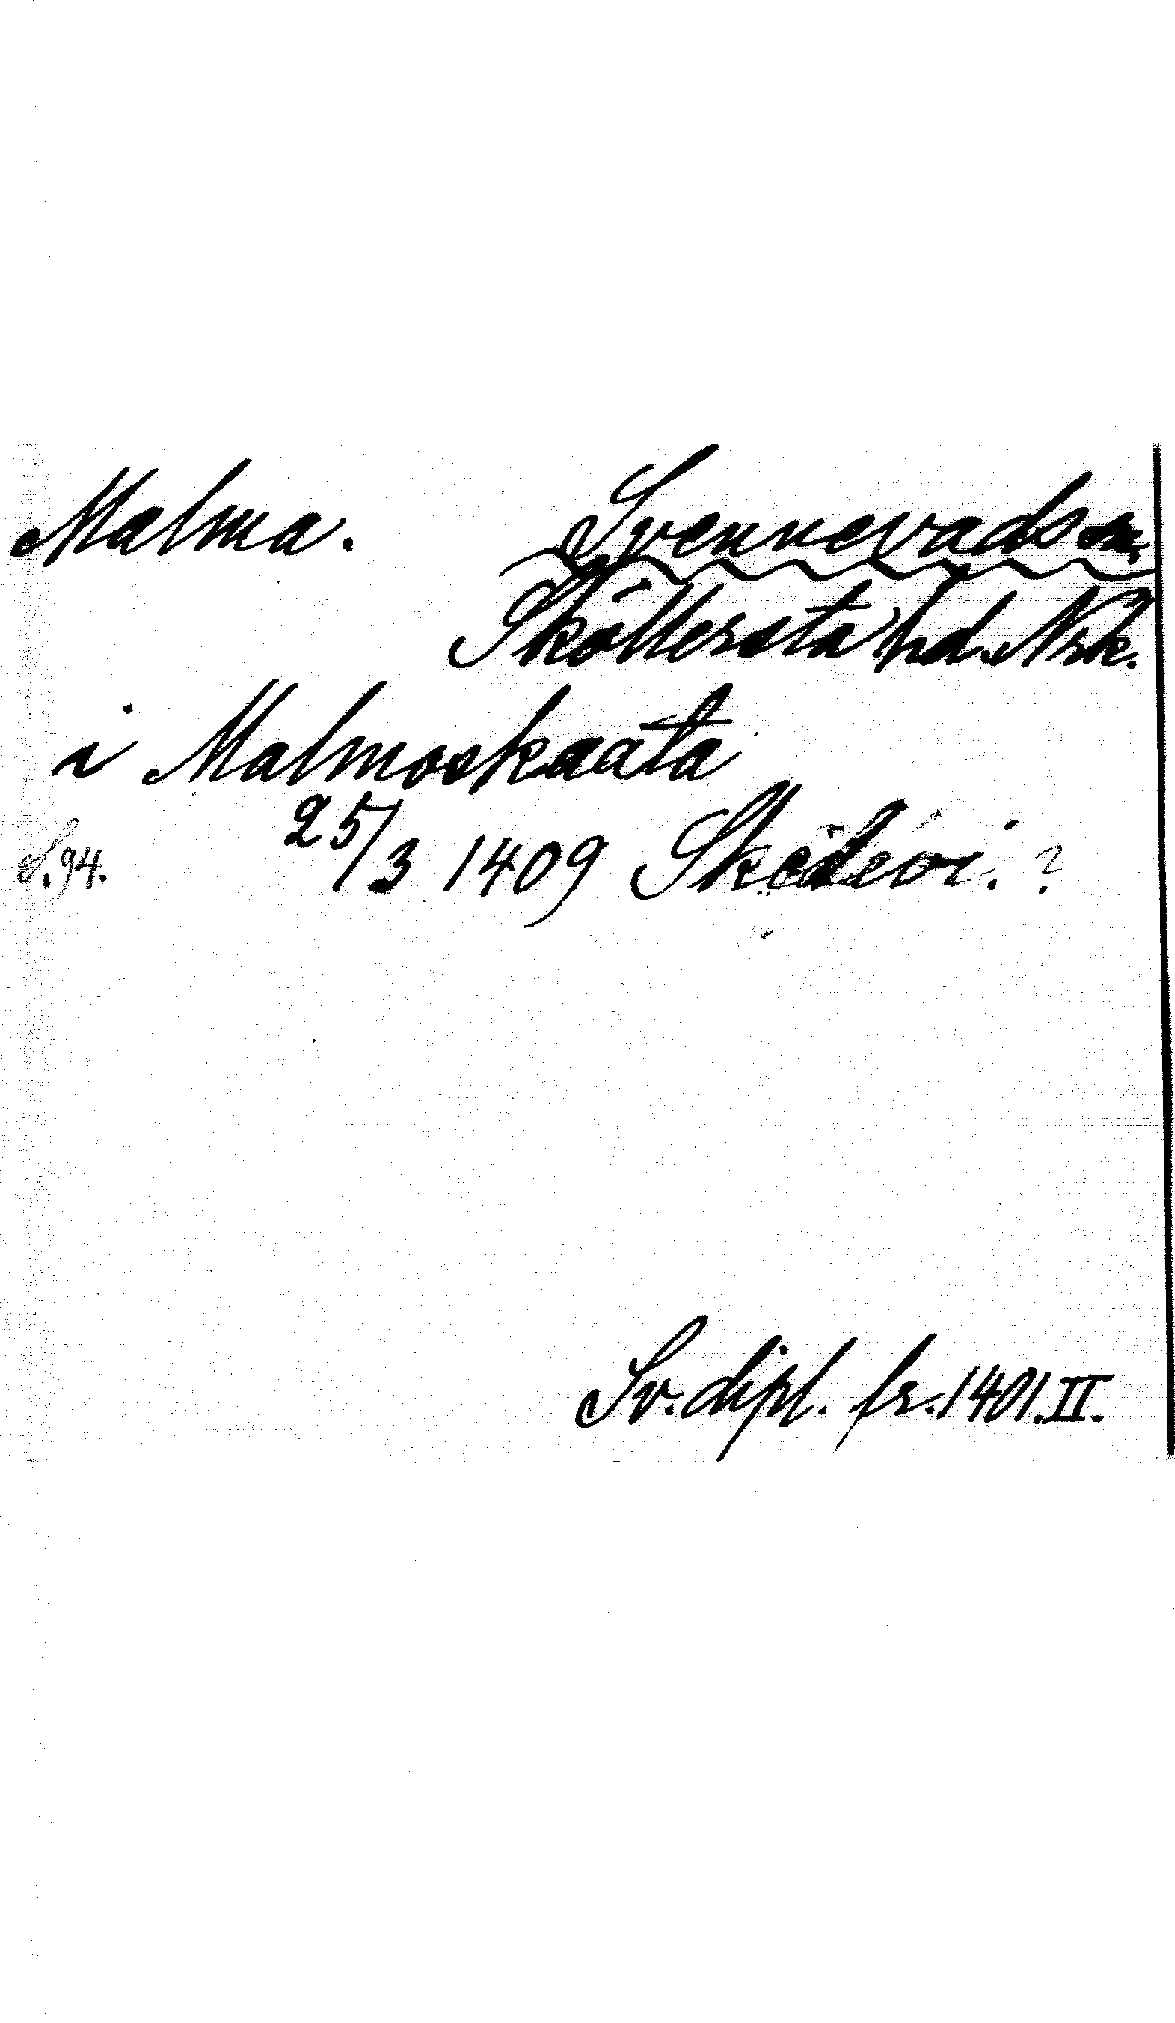 Malma. Svennevads sn.
Sköllersta hd. Nrk.
i Malmoskaata
S.94. 25/3 1409 Skedevi. ?
Sv. dipl. fr. 1401. II.